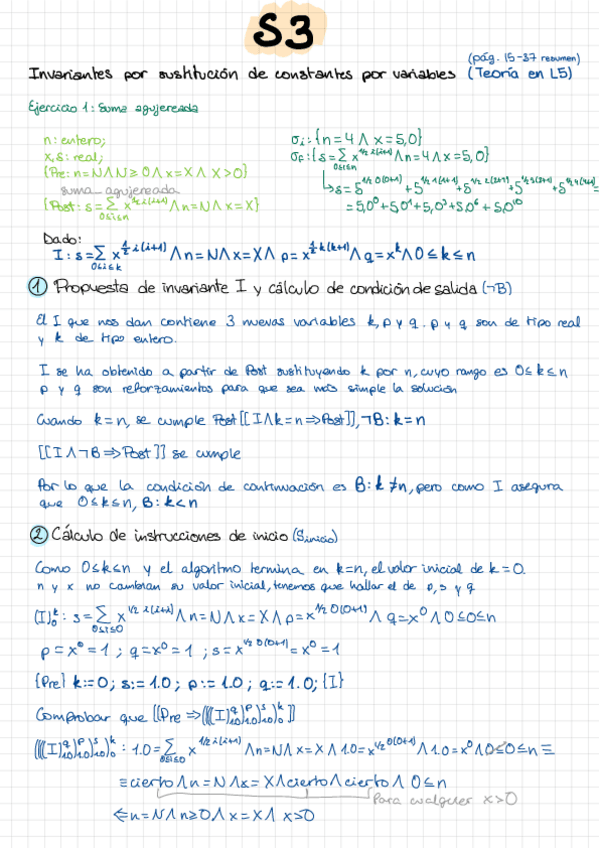 S3
(pág. 15-37 resumen)
Invariantes por sustitución de constantes por variables (Teoría en L5)
Ejercicio 1: Suma agujereada
n: entero;
x, s: real;
{Pre: n=N ∧ N≥0 ∧ x=X ∧ X>0}
suma_agujereada
{Post: s=∑ x^1/2 i(i+1) ∧ n=N ∧ x=X}
0≤i≤n
σi: {n=4 ∧ x=5,0}
σf: {s=∑ x^1/2 i(i+1) ∧ n=4 ∧ x=5,0}
0≤i≤n
↳ s=5^1/2 0(0+1) + 5^1/2 1(1+1) + 5^1/2 2(2+1) + 5^1/2 3(3+1) + 5^1/2 4(4+1) =
= 5,0^0 + 5,0^1 + 5,0^3 + 5,0^6 + 5,0^10
Dado:
I: s=∑ x^1/2 i(i+1) ∧ n=N ∧ x=X ∧ p=x^1/2 k(k+1) ∧ q=x^k ∧ 0≤k≤n
0≤i≤k
① Propuesta de invariante I y cálculo de condición de salida (¬B)
El I que nos dan contiene 3 nuevas variables k, p y q. p y q son de tipo real
y k de tipo entero.
I se ha obtenido a partir de Post sustituyendo k por n, cuyo rango es 0≤k≤n
p y q son reforzamientos para que sea más simple la solución
Cuando k=n, se cumple Post [[I∧k=n⇒Post]], ¬B: k=n
[[I∧¬B⇒Post]] se cumple
Por lo que la condición de continuación es B: k≠n, pero como I asegura
que 0≤k≤n, B: k<n
② Cálculo de instrucciones de inicio (Sinicio)
Como 0≤k≤n y el algoritmo termina en k=n, el valor inicial de k=0.
n y x no cambian su valor inicial, tenemos que hallar el de p, s y q
(I)^k_0: s=∑ x^1/2 i(i+1) ∧ n=N ∧ x=X ∧ p=x^1/2 0(0+1) ∧ q=x^0 ∧ 0≤0≤n
0≤i≤0
p=x^0=1; q=x^0=1; s=x^1/2 0(0+1)=x^0=1
{Pre} k:=0; s:=1.0; p:=1.0; q:=1.0; {I}
Comprobar que [[Pre⇒((((I)^q_1.0)^p_1.0)^s_1.0)^k_0]]
((((I)^q_1.0)^p_1.0)^s_1.0)^k_0: 1.0=∑ x^1/2 i(i+1) ∧ n=N ∧ x=X ∧ 1.0=x^1/2 0(0+1) ∧ 1.0=x^0 ∧ 0≤0≤n ≡
0≤i≤0
≡ cierto ∧ n=N ∧ x=X ∧ cierto ∧ cierto ∧ 0≤n
Para cualquier x>0
⇐ n=N ∧ n≥0 ∧ x=X ∧ x>0